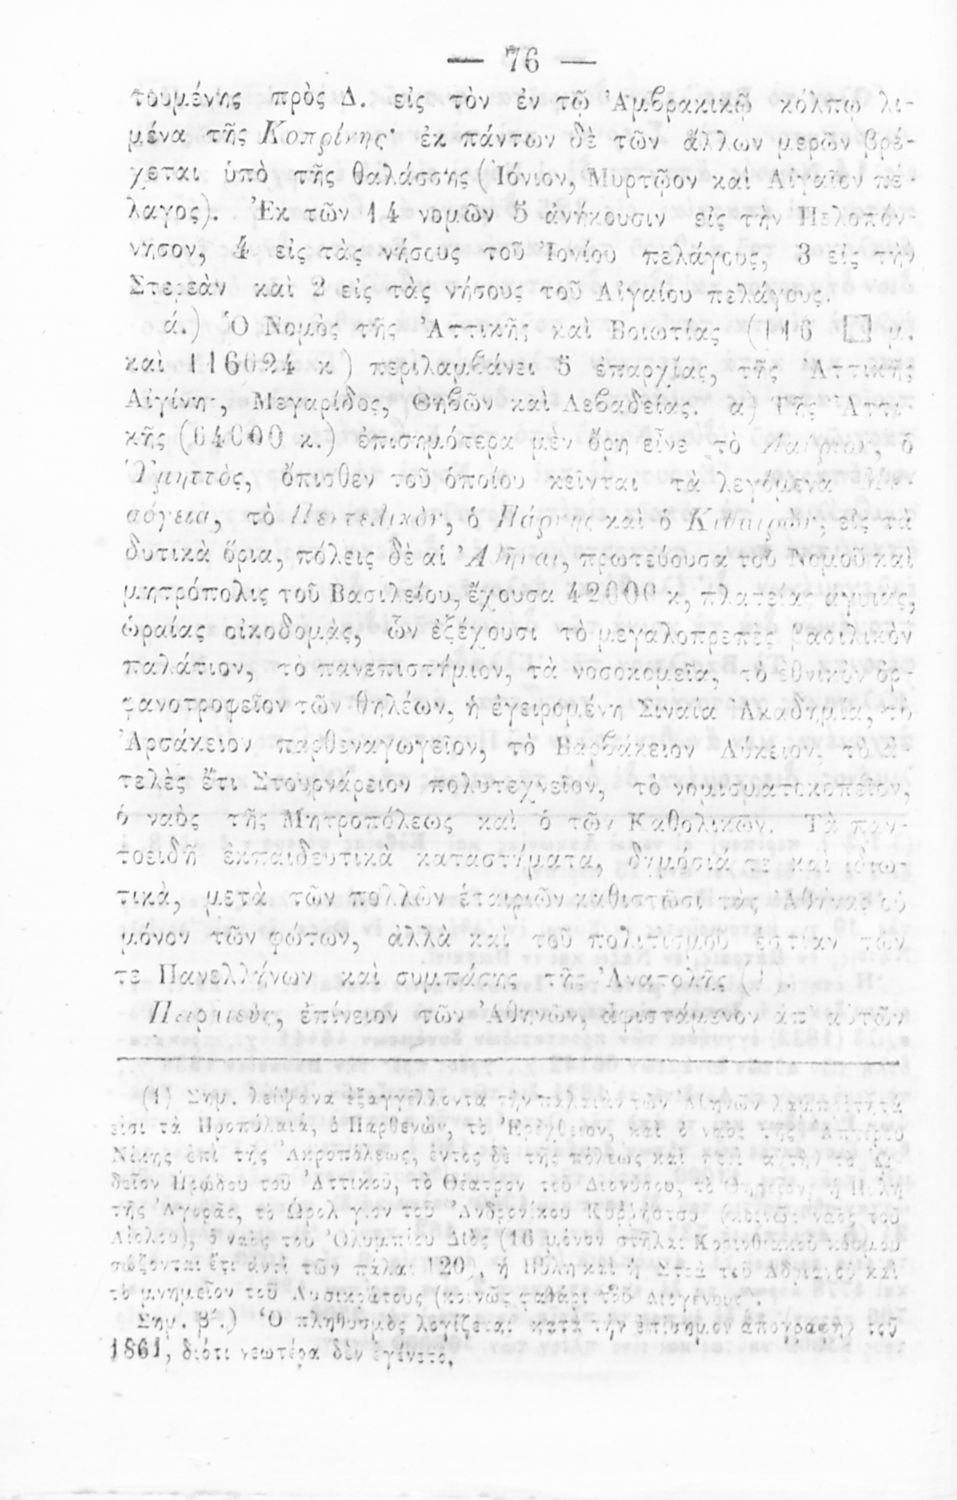 — 76 —
τουμένης πρὸς Δ. εἰς τὸν ἐν τῷ Ἀμβρακικῷ κόλπῳ λι-
μένα τῆς Κοπρίνης· ἐκ πάντων δὲ τῶν ἄλλων μερῶν βρέ-
χεται ὑπὸ τῆς θαλάσσης (Ἰόνιον, Μυρτῷον καὶ Αἰγαῖον πέ-
λαγος). Ἐκ τῶν 14 νομῶν 5 ἀνήκουσιν εἰς τὴν Πελοπόν-
νησον, 4 εἰς τὰς νήσους τοῦ Ἰονίου πελάγους, 3 εἰς τὴν
Στερεὰν καὶ 2 εἰς τὰς νήσους τοῦ Αἰγαίου πελάγους.
ά.) Ὁ Νομὸς τῆς Ἀττικῆς καὶ Βοιωτίας (116 □ μ.
καὶ 116024 κ.) περιλαμβάνει 5 ἐπαρχίας, τῆς Ἀττικῆς
Αἰγίνης, Μεγαρίδος, Θηβῶν καὶ Λεβαδείας. α) Τῆς Ἀττι-
κῆς (64000 κ.) ἐπισημότερα μὲν ὄρη εἶνε τὸ Λαύριον, ὁ
Ὑμηττὸς, ὄπισθεν τοῦ ὁποίου κεῖνται τὰ λεγόμενα Με-
σόγεια, τὸ Πεντελικὸν, ὁ Πάρνης καὶ ὁ Κιθαιρὼν, εἰς τὰ
δυτικὰ ὅρια, πόλεις δὲ αἱ Ἀθῆναι, πρωτεύουσα τοῦ Νομοῦ καὶ
μητρόπολις τοῦ Βασιλείου, ἔχουσα 42000 κ, πλατείας ἀγυιὰς,
ὡραίας οἰκοδομὰς, ὧν ἐξέχουσι τὸ μεγαλοπρεπὲς βασιλικὸν
παλάτιον, τὸ πανεπιστήμιον, τὰ νοσοκομεῖα, τὸ ἐθνικὸν ὀρ-
φανοτροφεῖον τῶν θηλέων, ἡ ἐγειρομένη Σιναία Ἀκαδημία, τὸ
Ἀρσάκειον παρθεναγωγεῖον, τὸ Βαρβάκειον Λύκειον, τὸ ἀ-
τελὲς ἔτι Στουρνάρειον πολυτεχνεῖον, τὸ νομισματοκοπεῖον,
ὁ ναὸς τῆς Μητροπόλεως καὶ ὁ τῶν Καθολικῶν. Τὰ παν-
τοειδῆ ἐκπαιδευτικὰ καταστήματα, δημόσιά τε καὶ ἰδιω-
τικὰ, μετὰ τῶν πολλῶν ἑταιριῶν καθιστῶσι τὰς Ἀθήνας οὐ
μόνον τῶν φώτων, ἀλλὰ καὶ τοῦ πολιτισμοῦ ἑστίαν τῶν
τε Πανελλήνων καὶ συμπάσης τῆς Ἀνατολῆς (1).
Πειραιεὺς, ἐπίνειον τῶν Ἀθηνῶν, ἀφιστάμενον ἀπ' αὐτῶν
(1) Σημ. λείψανα ἐξαγγέλλοντα τὴν παλαιὰν τῶν Ἀθηνῶν λαμπρότητα
εἰσὶ τὰ Προπύλαια, ὁ Παρθενὼν, τὸ Ἐρέχθειον, καὶ ὁ ναὸς τῆς Ἀπτέρου
Νίκης ἐπὶ τῆς Ἀκροπόλεως, ἐντὸς δὲ τῆς πόλεως καὶ περὶ αὐτὴν τὸ Ὠ-
δεῖον Ἡρώδου τοῦ Ἀττικοῦ, τὸ Θέατρον τοῦ Διονύσου, τὸ Θησεῖον, ἡ Πύλη
τῆς Ἀγορᾶς, τὸ Ὡρολόγιον τοῦ Ἀνδρονίκου Κυρρήστου (κοινῶς ναὸς τοῦ
Αἰόλου), ὁ ναὸς τοῦ Ὀλυμπίου Διὸς (16 μόνον στῆλαι Κορινθιακοῦ κόσμου
σώζονται ἔτι ἀντὶ τῶν πάλαι 120), ἡ Πύλη καὶ ἡ Στοὰ τοῦ Ἀδριανοῦ καὶ
τὸ μνημεῖον τοῦ Λυσικράτους (κοινῶς φανάρι τοῦ Διογένους).
Σημ. β'.) Ὁ πληθυσμὸς λογίζεται κατὰ τὴν ἐπίσημον ἀπογραφὴν τοῦ
1861, διότι νεωτέρα δὲν ἐγίνετο.